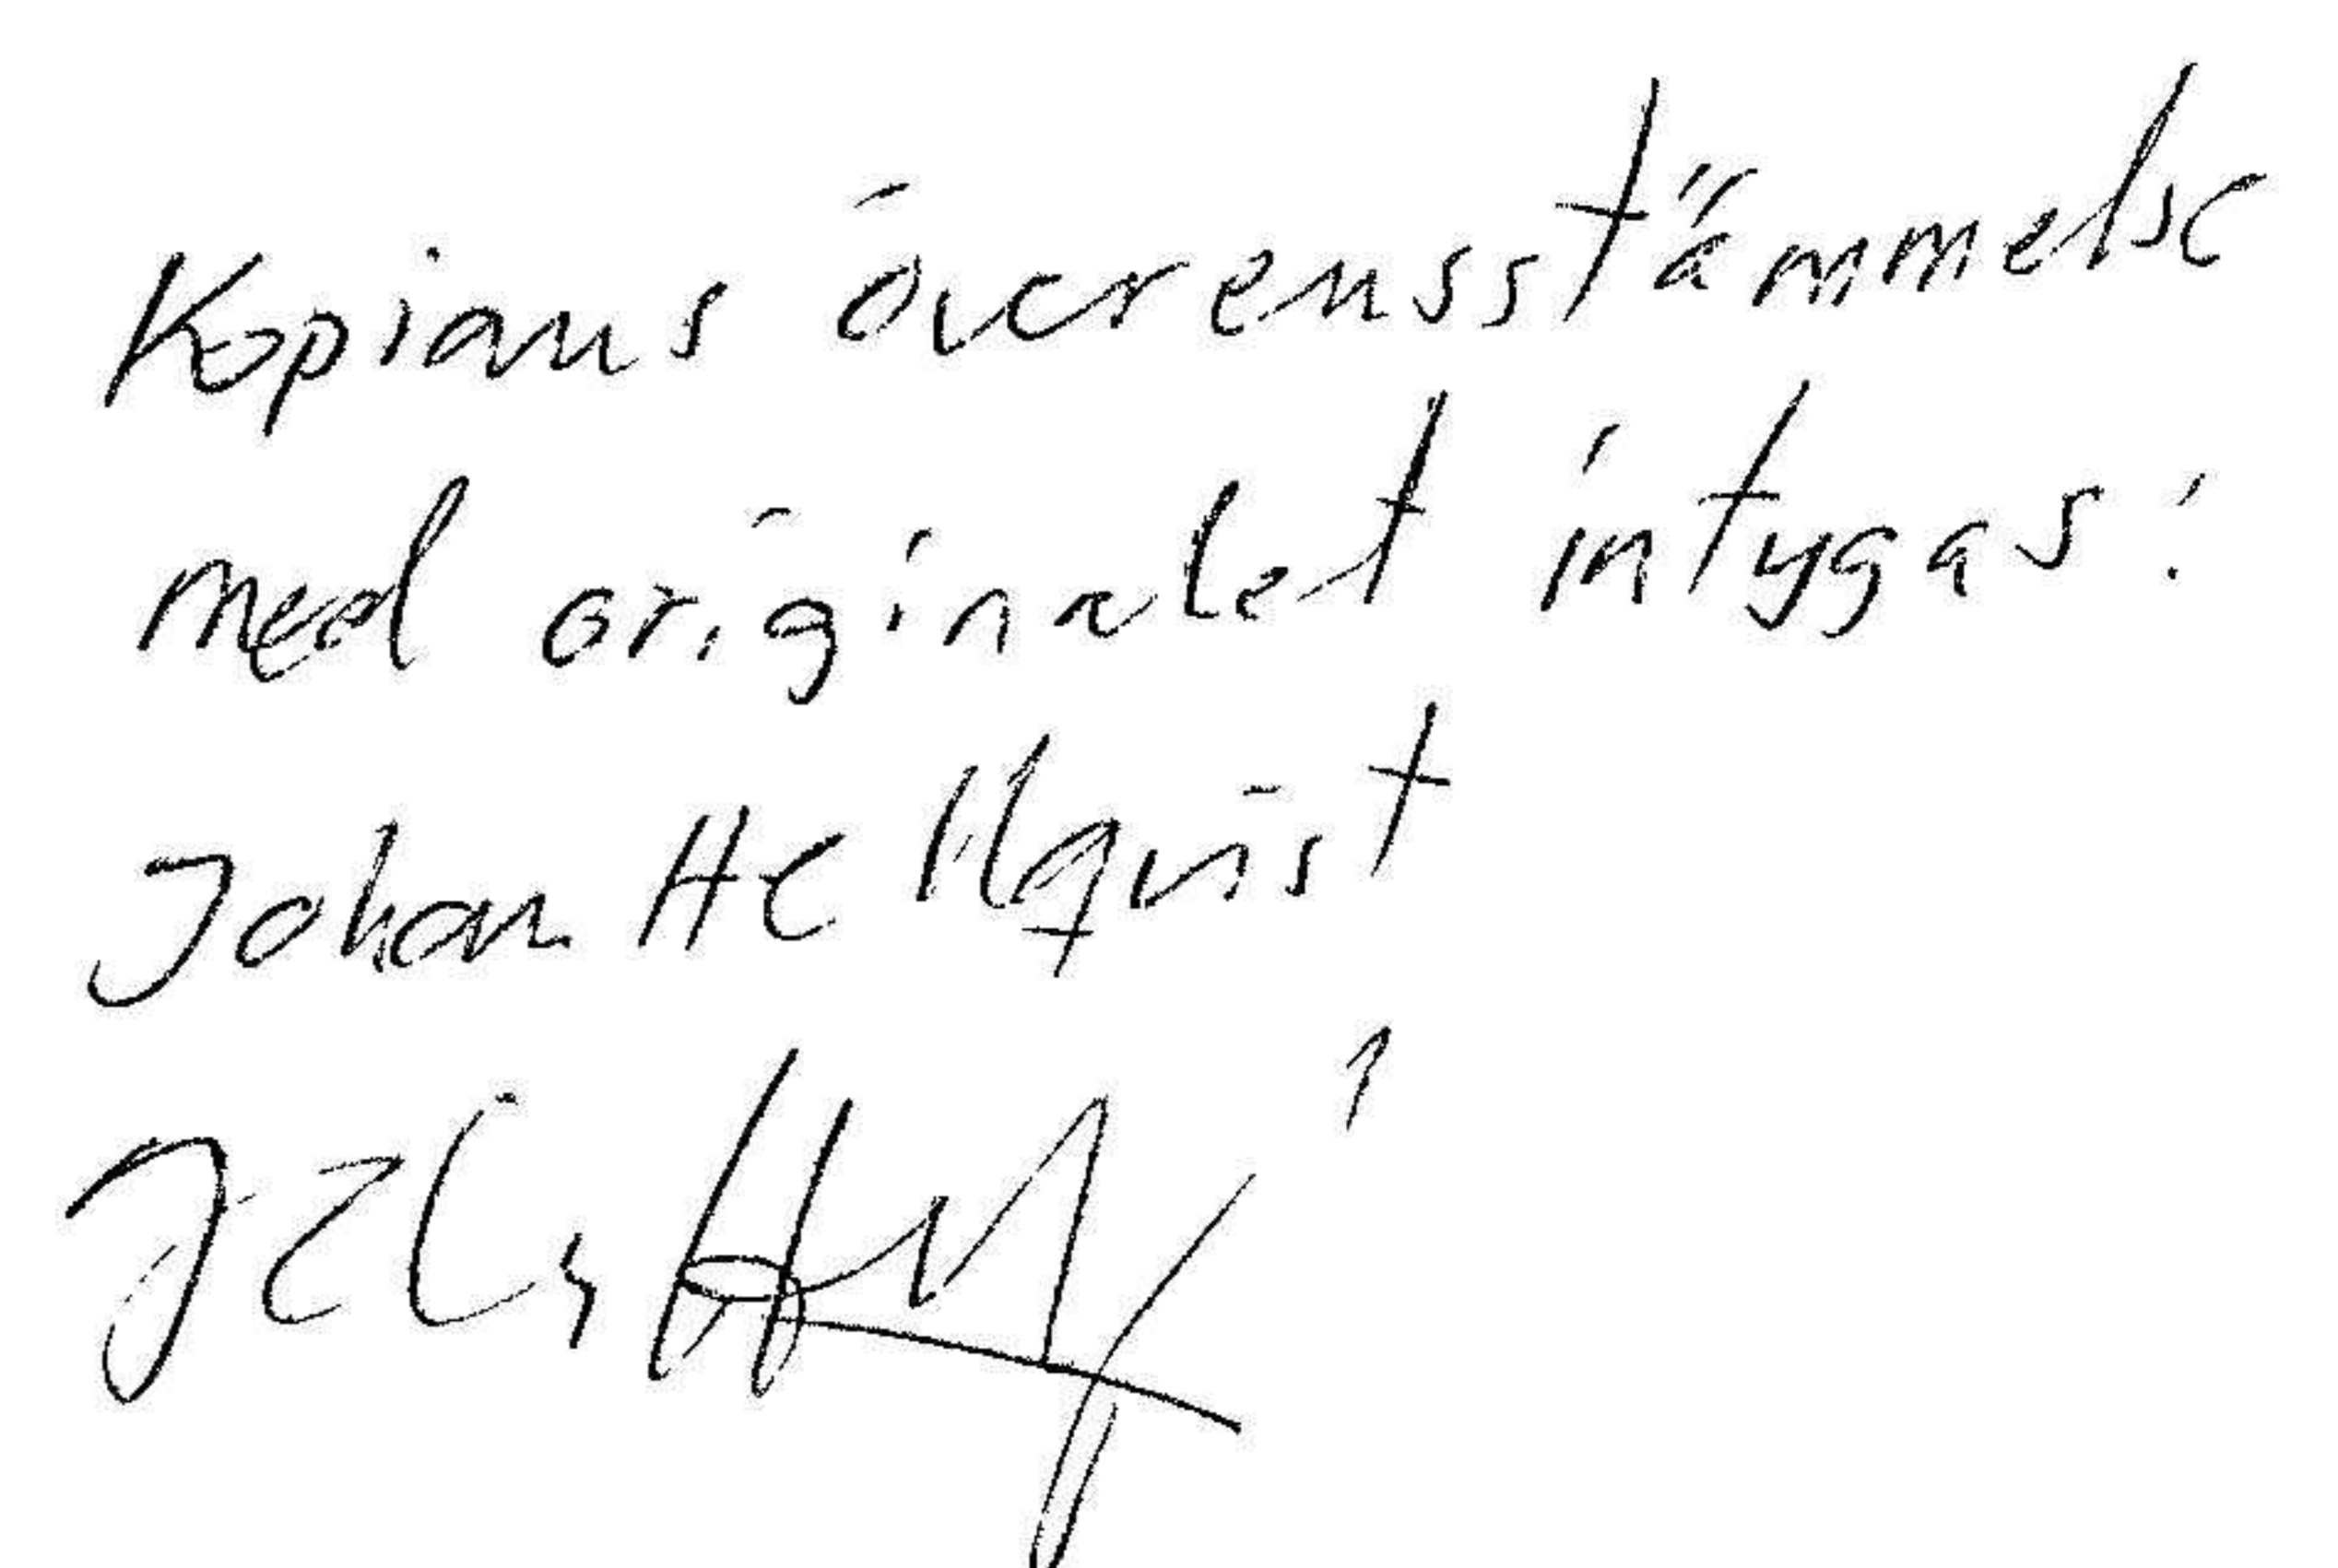 Kopians överensstämmelse
med originalet intygas:
Johan Hellqvist